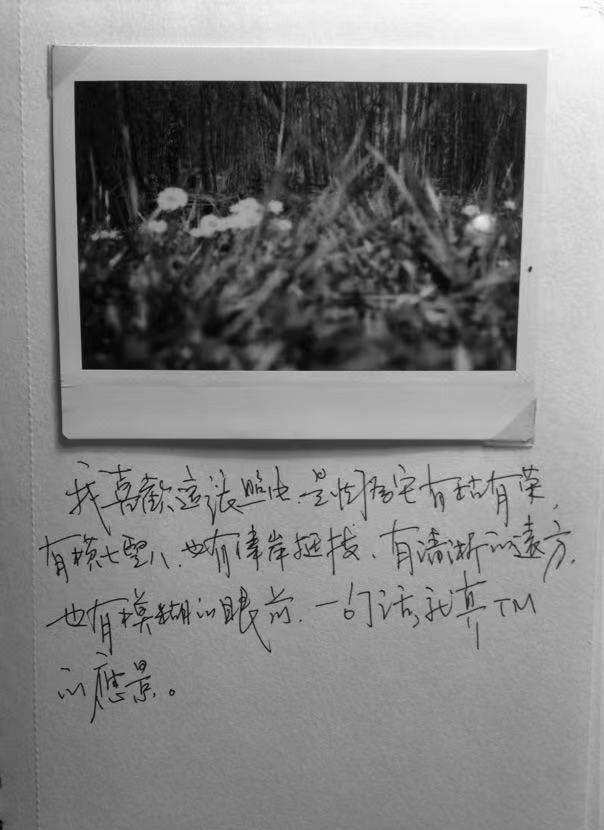 我喜歡這張照片.是因為它有枯有荣,
有横七竖八.也有偉岸挺拔.有清晰的遠方.
也有模糊的眼前.一句话,就真TM
的應景。